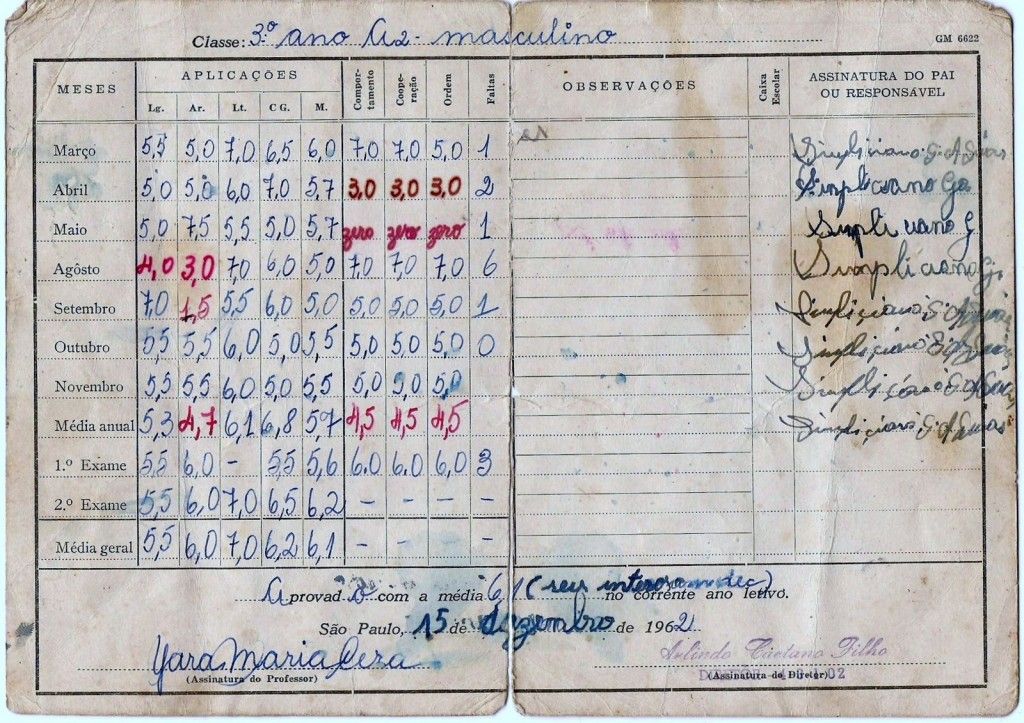 Classe: 3.º ano A2 - masculino
GM 6622
MESES APLICAÇÕES Compor-tamento Coope-ração Ordem Faltas OBSERVAÇÕES Caixa Escolar ASSINATURA DO PAI OU RESPONSÁVEL
Lg. Ar. Lt. C G. M.
Março 5,5 5,0 7,0 6,5 6,0 7,0 7,0 5,0 1
Abril 5,0 5,0 6,0 7,0 5,7 3,0 3,0 3,0 2 Simpliciano
Maio 5,0 7,5 5,5 5,0 5,7 zero zero zero 1
Agôsto 4,0 3,0 7,0 6,0 5,0 7,0 7,0 7,0 6 Simpliciano G.
Setembro 7,0 1,5 5,5 6,0 5,0 5,0 5,0 5,0 1
Outubro 5,5 5,5 6,0 5,0 5,5 5,0 5,0 5,0 0
Novembro 5,5 5,5 6,0 5,0 5,5 5,0 5,0 5,0
Média anual 5,3 4,7 6,1 6,8 5,7 4,5 4,5 4,5
1.º Exame 5,5 6,0 - 5,5 5,6 6.0 6.0 6,0 3
2.º Exame 5,5 6,0 7,0 6,5 6,2 - - - -
Média geral 5,5 6,0 7,0 6,2 6,1 - - - -
Aprovado com a média 6,1 ( no corrente ano letivo.
São Paulo, 15 de dezembro de 1962
Yara Maria
Arlindo Caetano Filho
(Assinatura do Professor)
(Assinatura do Diretor)